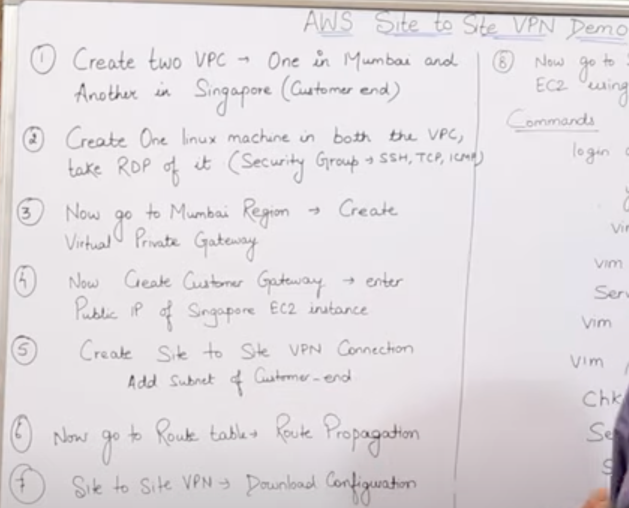 AWS Site to Site VPN Demo
① Create two VPC → One in Mumbai and
Another in Singapore (Customer end)
② Create One linux machine in both the VPC,
take RDP of it (Security Group → SSH, TCP, ICMP)
③ Now go to Mumbai Region → Create
Virtual Private Gateway
④ Now Create Customer Gateway → enter
Public IP of Singapore EC2 instance
⑤ Create Site to Site VPN Connection
Add Subnet of Customer-end
⑥ Now go to Route table → Route Propagation
⑦ Site to Site VPN → Download Configuration
⑧ Now go to
EC2 using
Commands
login
vim
Serv
vim
vim
Chk
Se
S